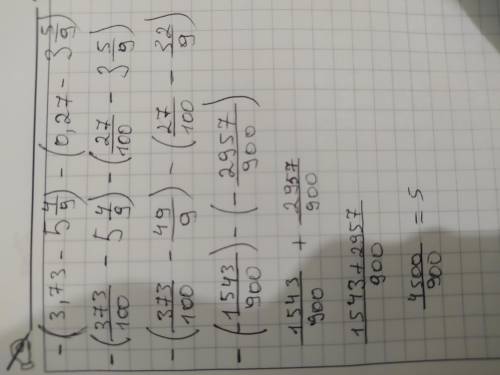 -(3,73 - 5 4/9) - (0,27 - 3 5/9)
-(373/100 - 5 4/9) - (27/100 - 3 5/9)
-(373/100 - 49/9) - (27/100 - 32/9)
-(-1543/900) - (-2957/900)
1543/900 + 2957/900
1543+2957/900
4500/900 = 5